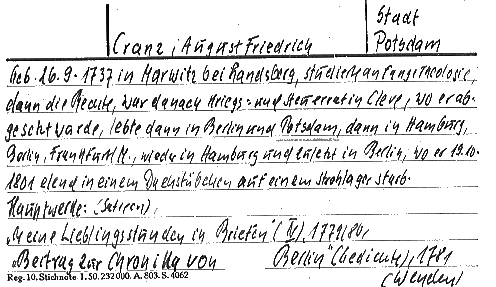 Stadt
Cranz, August Friedrich Potsdam
Geb. 26.9.1737 in Marwitz bei Landsberg, studierte anfangs Theologie,
dann die Rechte, war danach Kriegs- und Steuerrat in Cleve, wo er ab-
gesetzt wurde, lebte dann in Berlin und Potsdam, dann in Hamburg,
Berlin, Frankfurt M., wieder in Hamburg und zuletzt in Berlin, wo er 19.10.
1801 elend in einem Dachstübchen auf einem Strohlager starb.
Hauptwerke: (Satiren),
"Meine Lieblingsstunden in Briefen" (IV), 1779/80,
"Beitrag zur Chronika von Berlin" (Gedichte), 1781
Reg. 10. Stichnote. 1. 50. 232000. A. 803. S. 4062
(Wenden)